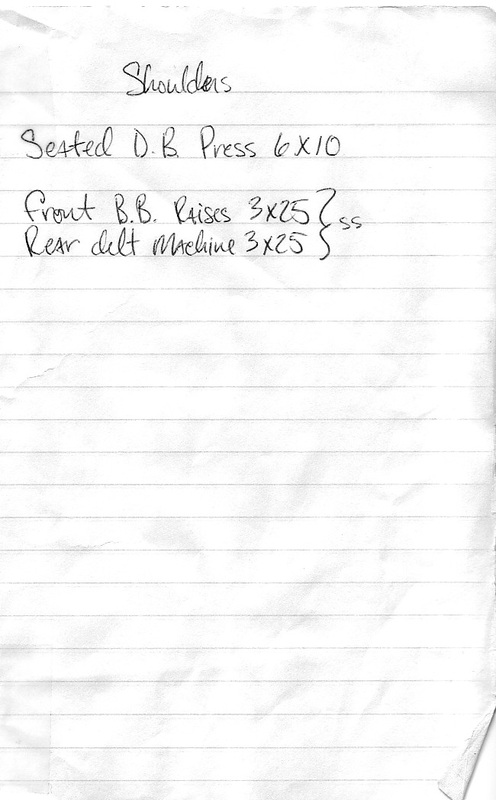 Shoulders
Seated D.B. Press 6x10
Front B.B. Raises 3x25 } ss
Rear delt machine 3x25